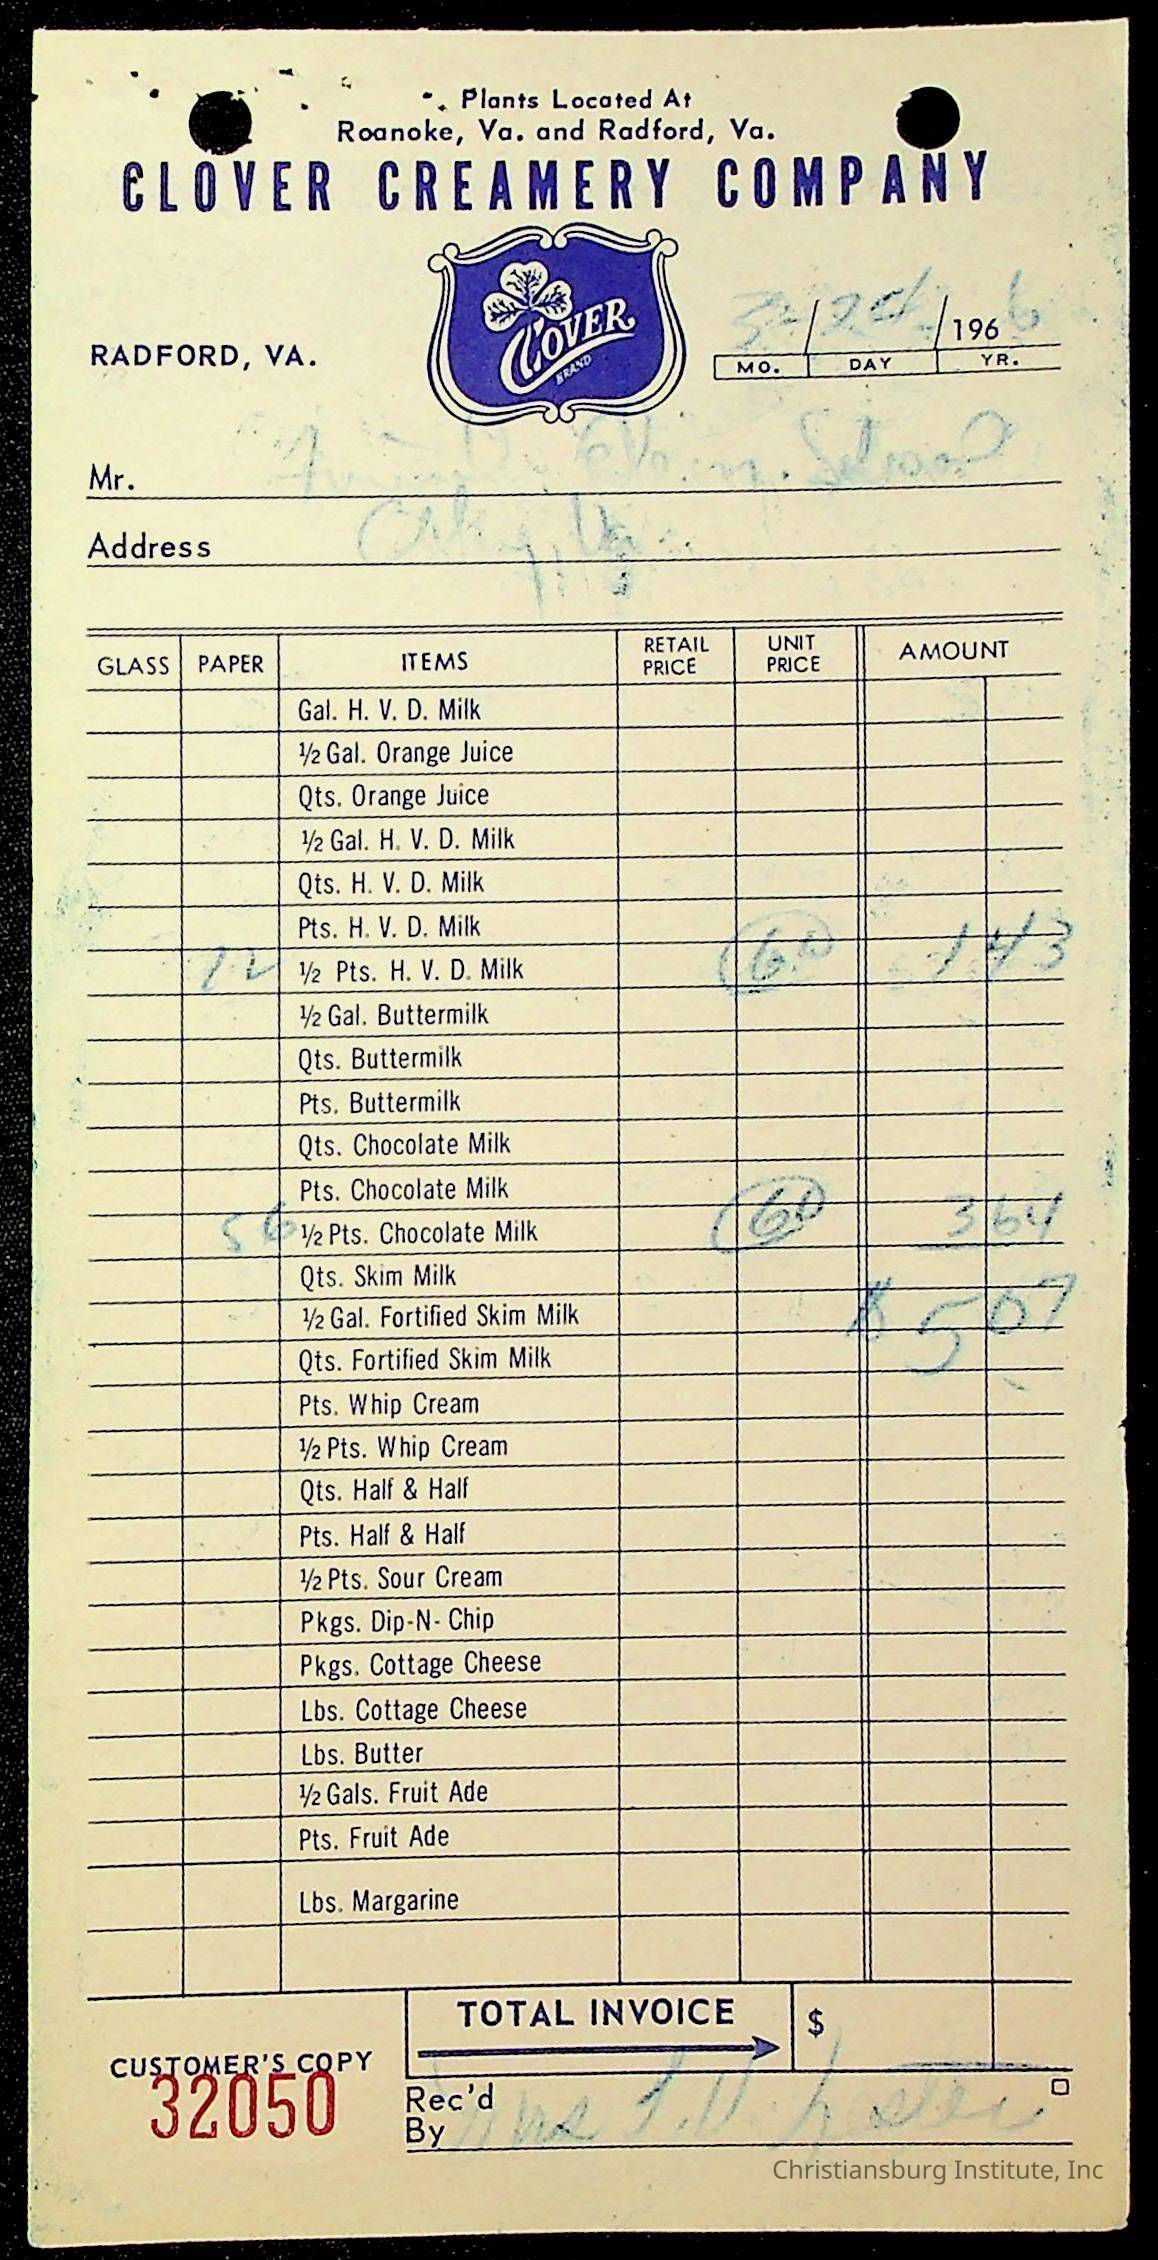 Plants Located At
Roanoke, Va. and Radford, Va.
CLOVER CREAMERY COMPANY
CLOVER
BRAND
RADFORD, VA.
3/24/1966
MO. DAY YR.
Mr. School
Address
GLASS PAPER ITEMS RETAIL PRICE UNIT PRICE AMOUNT
Gal. H. V. D. Milk
½ Gal. Orange Juice
Qts. Orange Juice
½ Gal. H. V. D. Milk
Qts. H. V. D. Milk
Pts. H. V. D. Milk
½ Pts. H. V. D. Milk 1 43
½ Gal. Buttermilk
Qts. Buttermilk
Pts. Buttermilk
Qts. Chocolate Milk
Pts. Chocolate Milk
56 ½ Pts. Chocolate Milk 60 3 64
Qts. Skim Milk
½ Gal. Fortified Skim Milk $ 5 07
Qts. Fortified Skim Milk
Pts. Whip Cream
½ Pts. Whip Cream
Qts. Half & Half
Pts. Half & Half
½ Pts. Sour Cream
Pkgs. Dip-N-Chip
Pkgs. Cottage Cheese
Lbs. Cottage Cheese
Lbs. Butter
½ Gals. Fruit Ade
Pts. Fruit Ade
Lbs. Margarine
TOTAL INVOICE $
CUSTOMER'S COPY
32050
Rec'd
By Mrs
Christiansburg Institute, Inc